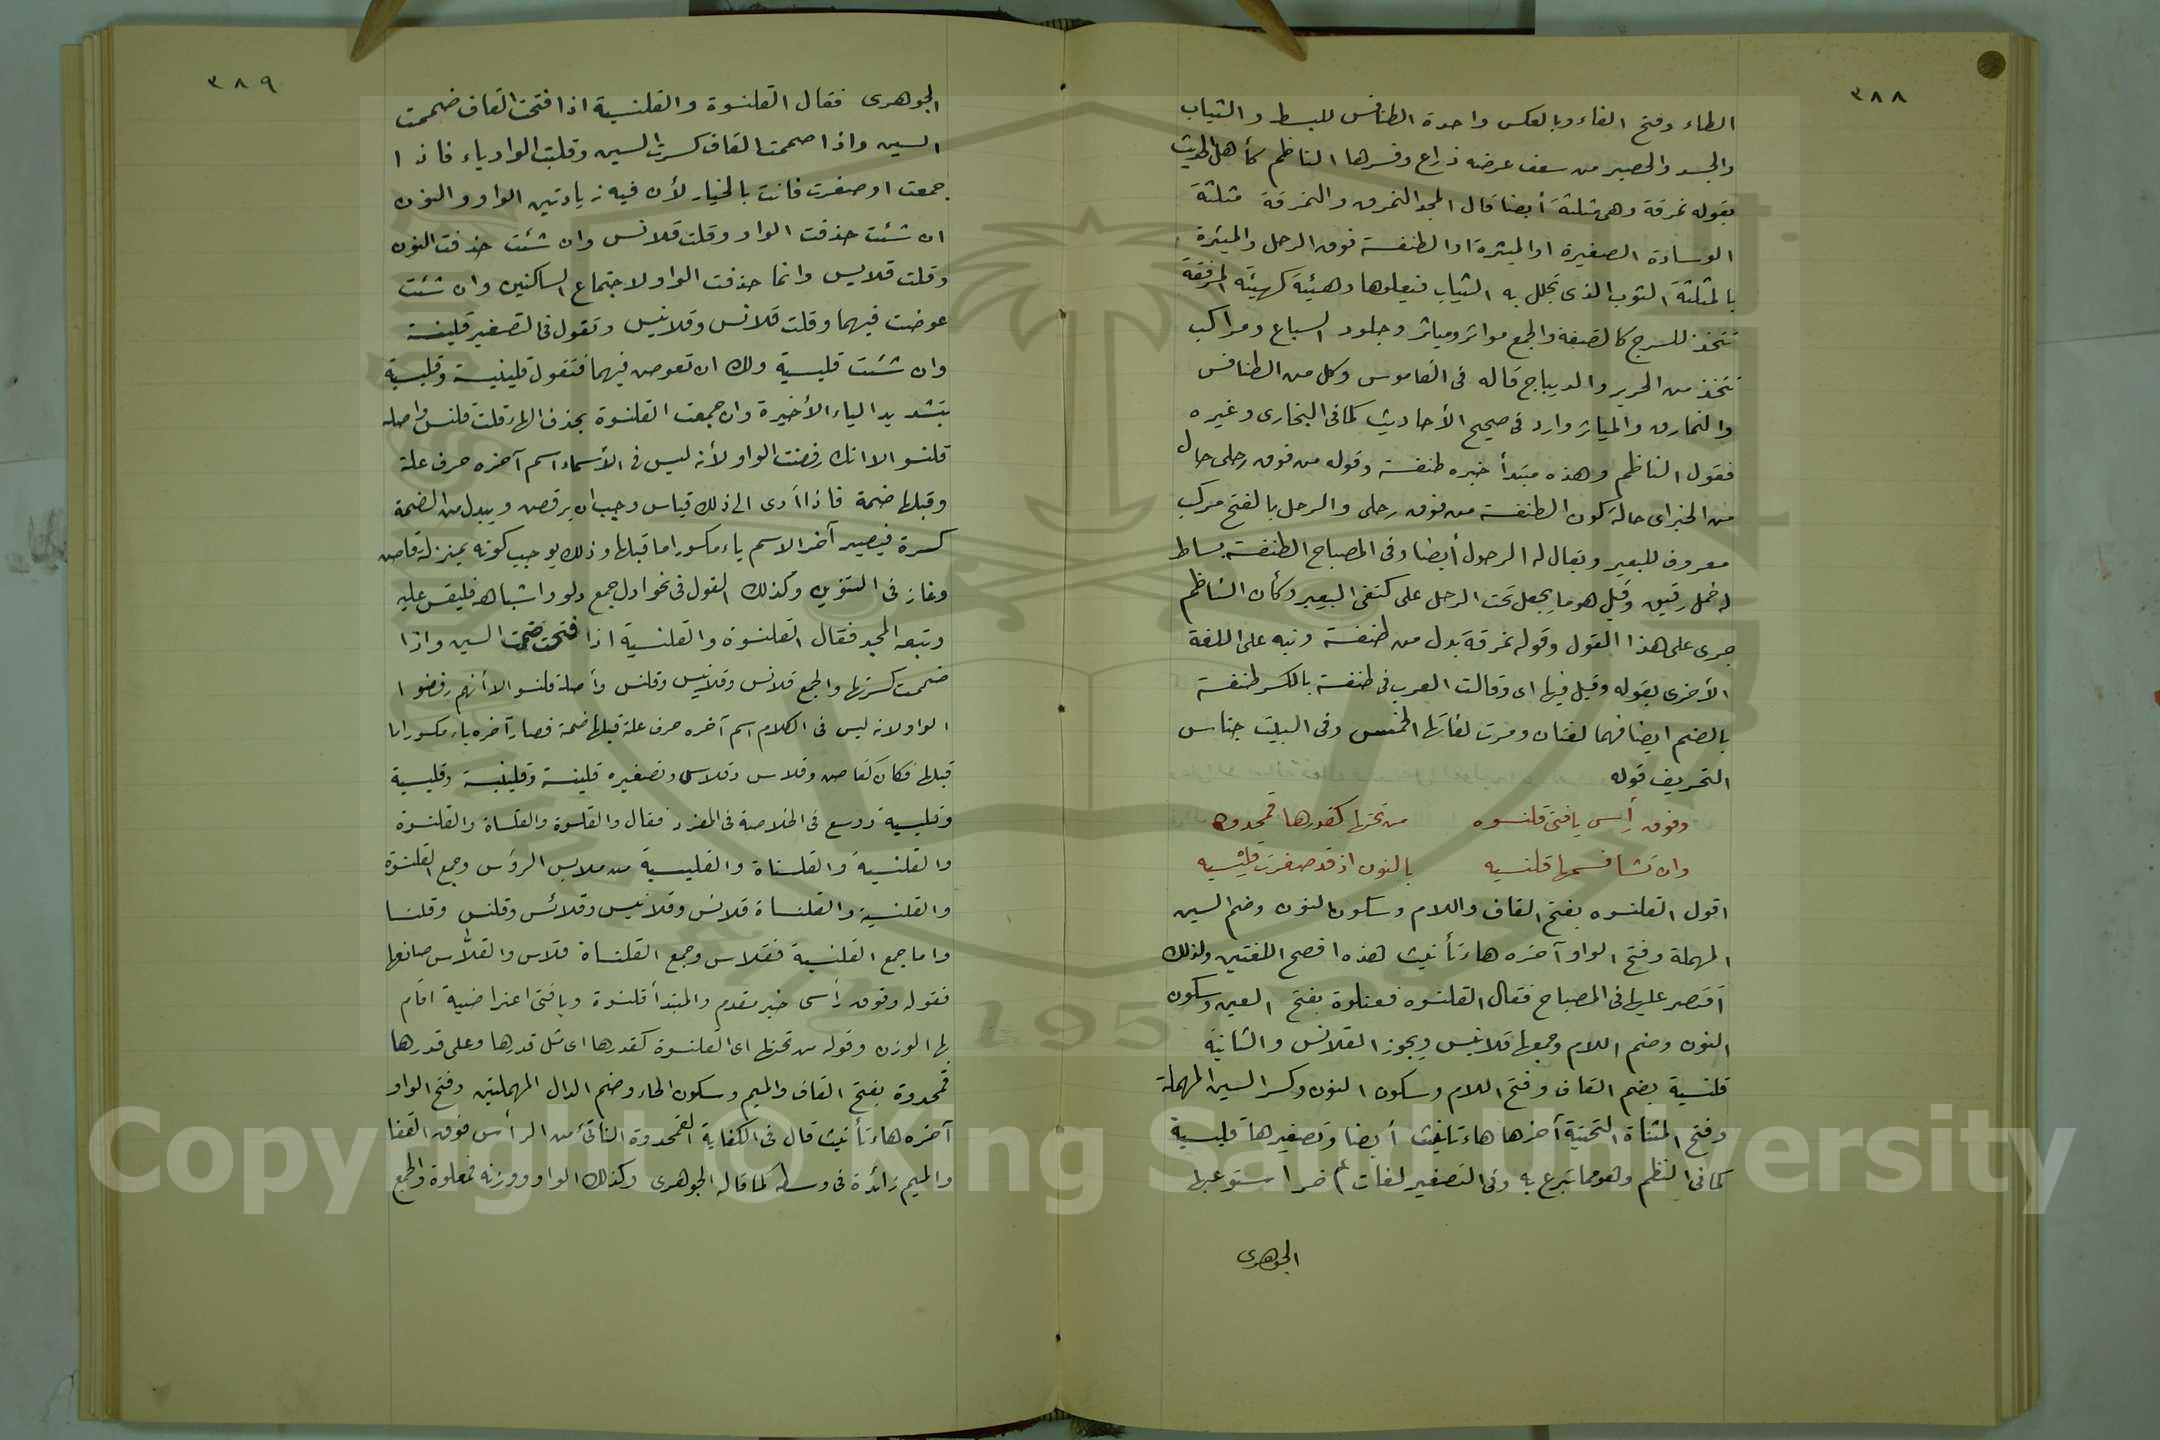 ٣٨٨
الطاء وفتح الفاء وبالعكس واحدة الطنافس للبسط والثياب
والجسد والحصير من سعف عرضه ذراع وفسرها الناظم كأهل الحديث
بقوله نمرقة وهى مثلثة أيضا قال المجد النمرق والنمرقة مثلثة
الوسادة الصغيرة او الميثرة او الطنفسة فوق الرحل والميثرة
بالمثلثة الثوب الذى تجلل به الثياب فيعلوها وهيئة كهيئة المرفقة
تتخذ للسرج كالصفة والجمع مواثر ومياثر وجلود السباع ومراكب
تتخذ من الحرير والديباج قاله فى القاموس وكل من الطنافس
والنمارق والمياثر وارد فى صحيح الأحاديث كما فى البخارى وغيره
فقول الناظم وهذه مبتدأ خبره طنفسة وقوله من فوق رحلى حال
من الخبر اى حالة كون الطنفسة من فوق رحلى والرحل بالفتح مركب
معروف للبعير ويقال له الرحول أيضا وفى المصباح الطنفسة بساط
له خمل رقيق وقيل هو ما يجعل تحت الرحل على كتفى البعير وكأن الناظم
جرى على هذا القول وقوله نمرقة بدل من طنفسة ونبه على اللغة
الأخرى بقوله وقيل فيها اى وقالت العرب فى طنفسة بالكسر طنفسة
بالضم ايضا فهما لغتان ومرت لغاتها الخمس وفى البيت جناس
التحريف قوله
وفوق رأسى يا فتى قلنسوه من تحتها كقدرها قمحدوه
وان تشا فسمها قلنسيه بالنون اذ قد صغرت قليسيه
اقول القلنسوه بفتح القاف واللام وسكون النون وضم السين
المهملة وفتح الواو آخره هاء تأنيث هذه افصح اللغتين ولذلك
اقتصر عليها فى المصباح فقال القلنسوه فعنلوة بفتح العين وسكون
النون وضم اللام وجمعها قلانيس ويجوز القلانس والثانية
قلنسية بضم القاف وفتح اللام وسكون النون وكسر السين المهملة
وفتح المثناة التحتية آخرها هاء تانيث أيضا وتصغيرها قليسية
كما فى النظم وهو مما تبرع به وفى التصغير لغات أخر استوعبها
الجوهرى
٣٨٩
الجوهرى فقال القلنسوة والقلنسية اذا فتحت القاف ضممت
السين واذا ضممت القاف كسرت السين وقلبت الواو ياء فاذا
جمعت او صغرت فانت بالخيار لأن فيه زيادتين الواو والنون
ان شئت حذفت الواو وقلت قلانس وان شئت حذفت النون
وقلت قلايس وانما حذفت الواو لاجتماع الساكنين وان شئت
عوضت فيهما وقلت قلانس وقلانيس وتقول فى التصغير قلينسة
وان شئت قليسية ولك ان تعوض فيهما فتقول قلينيسة وقليسية
بتشديد الياء الأخيرة وان جمعت القلنسوة بحذف الهاء قلت قلنس واصله
قلنسو الا انك رفضت الواو لأنه ليس فى الأسماء اسم آخره حرف علة
وقبلها ضمة فاذا أدى الى ذلك قياس وجب ان يرفض ويبدل من الضمة
كسرة فيصير آخر الاسم ياء مكسورا ما قبلها وذلك يوجب كونه بمنزلة قاض
وغاز فى التنوين وكذلك القول فى نحو ادل جمع دلو واشباهه فليقس عليه
وتبعه المجد فقال القلنسوة والقلنسية اذا فتحت ضممت السين واذا
ضممت كسرتها والجمع قلانس وقلانيس وقلنس وأصله قلنسو الا أنهم رفضوا
الواو لانه ليس فى الكلام اسم آخره حرف علة قبلها ضمة فصار آخره ياء مكسورا ما
قبلها فكان كقاض وقلاس وقلاسى وتصغيره قلينسة وقلينيسة وقليسية
وقليسية ووسع فى الخلاصة فى المفرد فقال والقلسوة والقلساة والقلنسوة
والقلنسية والقلنساة والقليسية من ملابس الرؤس وجمع القلنسوة
والقلنسية والقلنساة قلانس وقلانيس وقلائس وقلنس وقلنسا
واما جمع القلنسية فقلاس وجمع القلنساة قلاس والقلاس صانعها
فقوله وفوق رأسى خبر مقدم والمبتدأ قلنسوة ويا فتى اعتراضية اقام
بها الوزن وقوله من تحتها اى القلنسوة كقدرها اى مثل قدرها وعلى قدرها
قمحدوة بفتح القاف والميم وسكون الحاء وضم الدال المهملتين وفتح الواو
آخره هاء تأنيث قال فى الكفاية القمحدوة الناتئ من الرأس فوق القفا
والميم زائدة فى وسطه كما قاله الجوهرى وكذلك الواو ووزنه فمعلوة والجمع
Copyright © King Saud University
1957